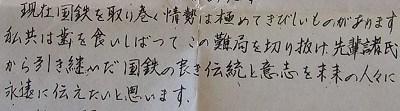 現在国鉄を取り巻く情勢は極めてきびしいものがあります
私共は歯を食いしばって この難局を切り抜け先輩諸氏
から引き継いだ国鉄の良き伝統と意志を未来の人々に
永遠に伝えたいと思います.